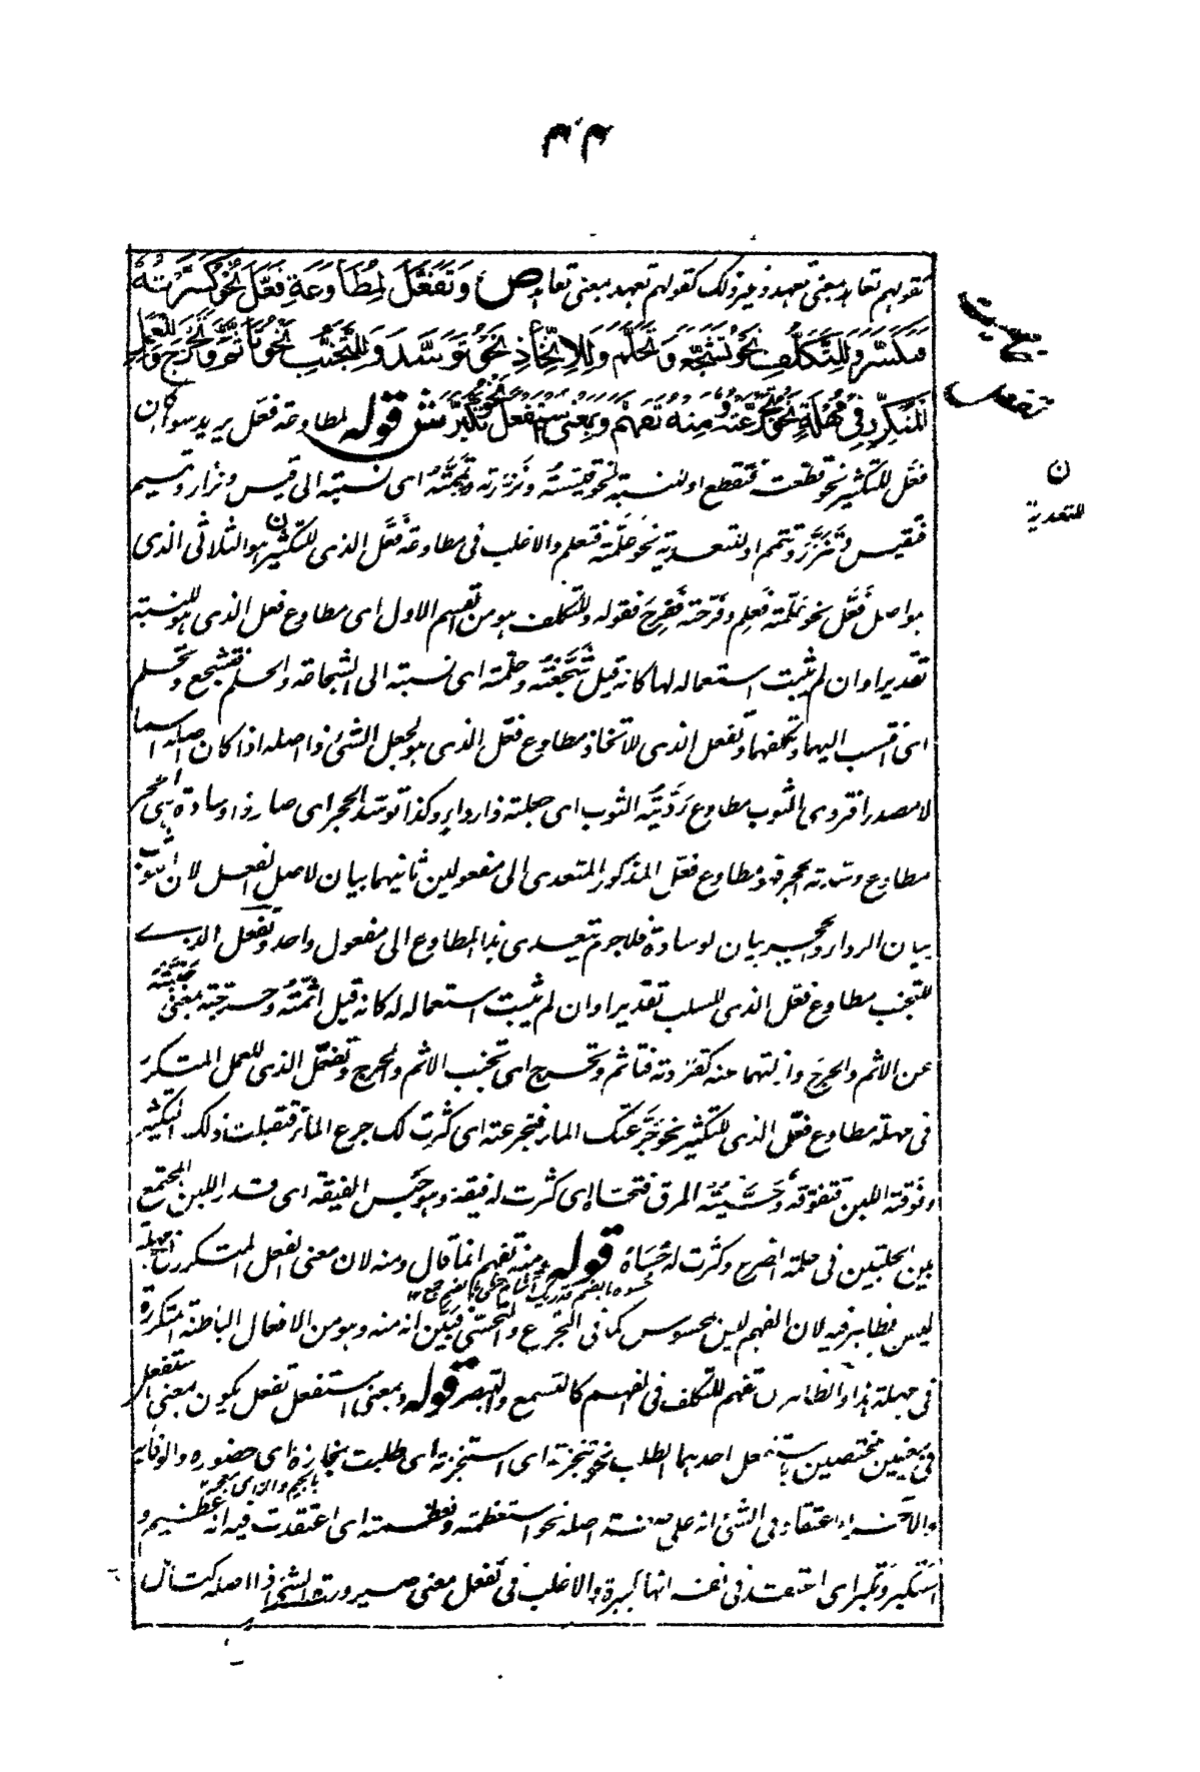 ٣٣
كقولهم تعاهد بمعنى تعهد وغير ذلك كقولهم تعهد بمعنى تعاهد ص وَتَفَعَّلَ لِمُطَاوَعَةِ فَعَّلَ نَحْوُ كَسَّرْتُهُ
فَتَكَسَّرَ وَلِلتَّكَلُّفِ نَحْوُ تَشَجَّعَ وَتَحَلَّمَ وَلِلاِتِّخَاذِ نَحْوُ تَوَسَّدَ وَلِلتَّجَنُّبِ نَحْوُ تَأَثَّمَ وَتَحَرَّجَ وَلِلْعَمَلِ
الْمُتَكَرِّرِ فِي مُهْلَةٍ نَحْوُ تَجَرَّعْتُهُ وَمِنْهُ تَفَهَّمَ وَبِمَعْنَى اسْتَفْعَلَ نَحْوُ تَكَبَّرَ ش قوله لمطاوعة فعّل يريد سواء كان
فعّل للتكثير نحو قطعته فتقطع او للنسبة نحو قيسته ونزرته وتممته اى نسبته الى قيس ونزار وتميم
فتقيس وتنزر وتتمم او للتعدية نحو علّمته فتعلم والاغلب فى مطاوعة فعّل الذى للتكثير هو الثلاثى الذى
هو اصل فعّل نحو علّمته فعلم وفرّحته ففرح فقوله وللتكلف هو من القسم الاول اى مطاوع فعل الذى هو للنسبة
تقديرا وان لم يثبت استعماله لها كانه قيل شجّعته وحلّمته اى نسبته الى الشجاعة والحلم فتشجع وتحلم
اى انتسب اليهما وتكلفهما وتفعل الذى للاتخاذ مطاوع فعّل الذى هو لجعل الشئ ذا اصله اذا كان اصله اسما
لا مصدرا فتردى الثوب مطاوع ردّيته الثوب اى جعلته ذا رداء وكذا توسد الحجر اى صار ذا وسادة هى الحجر
مطاوع وسّدته الحجر فهو مطاوع فعّل المذكور المتعدى الى مفعولين ثانيهما بيان لاصل الفعل لان الثوب
بيان الرداء والحجر بيان لوسادة فلا جرم يتعدى هذا المطاوع الى مفعول واحد وتفعل الذى
للتجنب مطاوع فعّل الذى للسلب تقديرا وان لم يثبت استعماله له كانه قيل اثّمته وحرّجته بمعنى جنّبته
عن الاثم والحرج وازلتهما عنه كقرّدته فتاثم وتحرج اى تجنب الاثم والحرج وتفعّل الذى للعمل المتكرر
فى مهلة مطاوع فعّل الذى للتكثير نحو جرّعتك الماء فتجرعته اى كثرت لك جرع الماء فتقبلت ذلك التكثير
وفوّقته اللبن فتفوقه وحسّيته المرق فتحساه اى كثرت له فيقة وهو جنس الفيقة اى قدر اللبن المجتمع
بين الحلبتين فى حلمة الضرع وكثرت له حساءً قوله ومنه تفهم انما قال ومنه لان معنى الفعل المتكرر فى مهلة
حسوه بالضم
ليس بظاهر فيه لان الفهم ليس بمحسوس كما فى التجرع والتحسّى فبيّن انه منه وهو من الافعال الباطنة المتكررة
فى مهلة هذا والظاهر ان تفهم للتكلف فى الفهم كالتسمع والتبصر قوله وبمعنى استفعل تفعل يكون بمعنى استفعل
فى معنيين مختصين باستفعل احدهما الطلب نحو تنجزته اى استنجزته اى طلبت نجازه اى حضوره والوفاء به
بالجيم والزاى معجمة
والآخر الاعتقاد فى الشئ انه على صفة اصله نحو استعظمته وتعظمته اى اعتقدت فيه انه عظيم و
استكبر وتكبر اى اعتقد فى نفسه انها كبيرة والاغلب فى تفعل معنى صيرورة الشئ ذا اصله كتاهل
ن
للتعدية